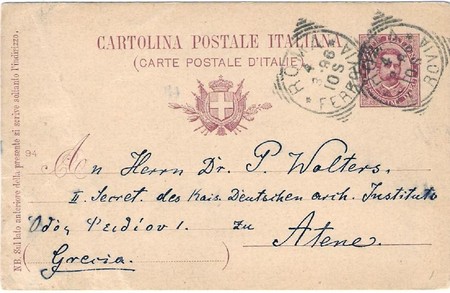 CARTOLINA POSTALE ITALIANA
(CARTE POSTALE D'ITALIE)
ROMA
FERROVIA
4
96
10 S
94
NB. Sul lato anteriore della presente si scrive soltanto l'indirizzo.
An Herrn Dr. P. Wolters.
II. Secret. des Kais. Deutschen arch. Instituts
Ὁδὸς Φειδίου 1. zu Atene.
Grecia.